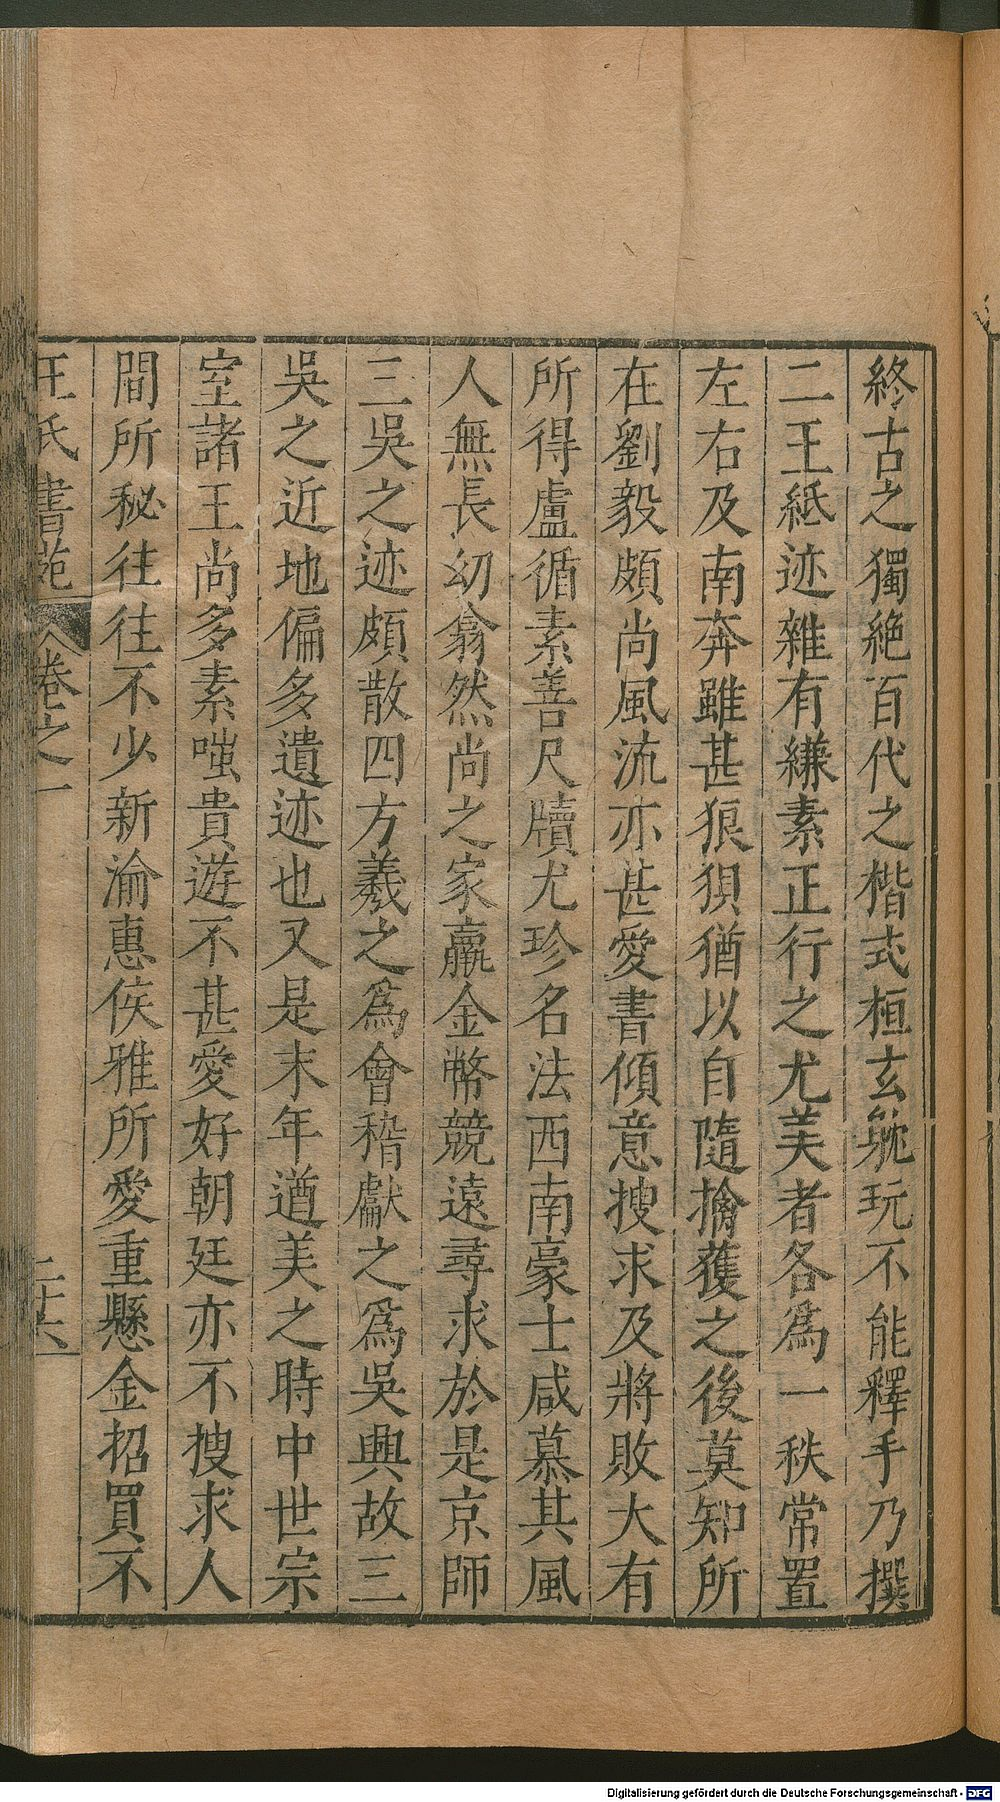 終古之獨絶百代之楷式桓玄躭玩不能釋手乃撰
二王紙迹雜有縑素正行之尤美者各爲一秩常置
左右及南奔雖甚狼狽猶以自隨擒獲之後莫知所
在劉毅頗尚風流亦甚愛書傾意搜求及將敗大有
所得盧循素善尺牘尤珍名法西南豪士咸慕其風
人無長幼翕然尚之家贏金幣競遠尋求於是京師
三吳之迹頗散四方羲之爲會稽獻之爲吳興故三
吳之近地偏多遺迹也又是末年遒美之時中世宗
室諸王尚多素嗤貴遊不甚愛好朝廷亦不搜求人
間所秘往往不少新渝惠侯雅所愛重懸金招買不
王氏書苑 卷之一 二十六
Digitalisierung gefördert durch die Deutsche Forschungsgemeinschaft - DFG